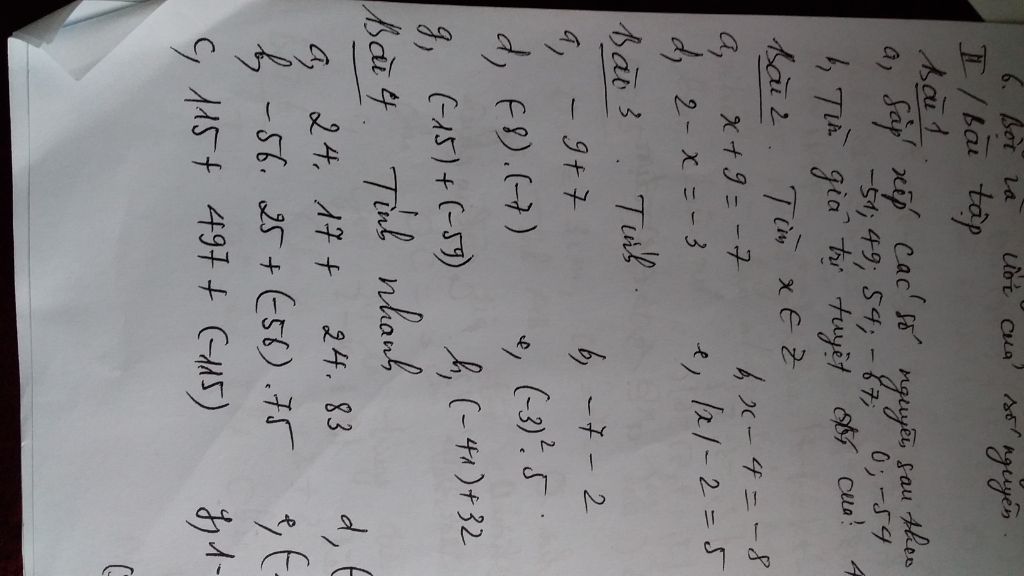 6. Bội và ước của số nguyên.
II / Bài tập
Bài 1.
a, Sắp xếp các số nguyên sau theo
-51; 49; 54; -67; 0; -54
b, Tìm giá trị tuyệt đối của: 4
Bài 2. Tìm x ∈ Z
a, x + 9 = -7 b, x - 4 = -8
d, 2 - x = -3 e, |x| - 2 = 5
Bài 3. Tính.
a, - 9 + 7 b, -7 - 2
d, (-8).(-7) e, (-3)². 5.
g, (-15) + (-59) h, (-41) + 32
Bài 4. Tính nhanh
a, 24. 17 + 24. 83 d, (
b, -56. 25 + (-56). 75 e, (-
c, 115 + 497 + (-115) g, 1-